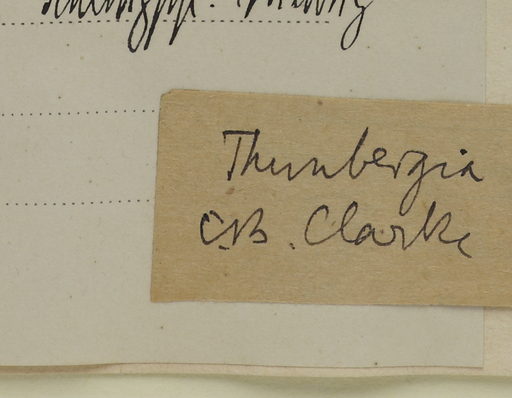 Thunbergia
C.B. Clarke